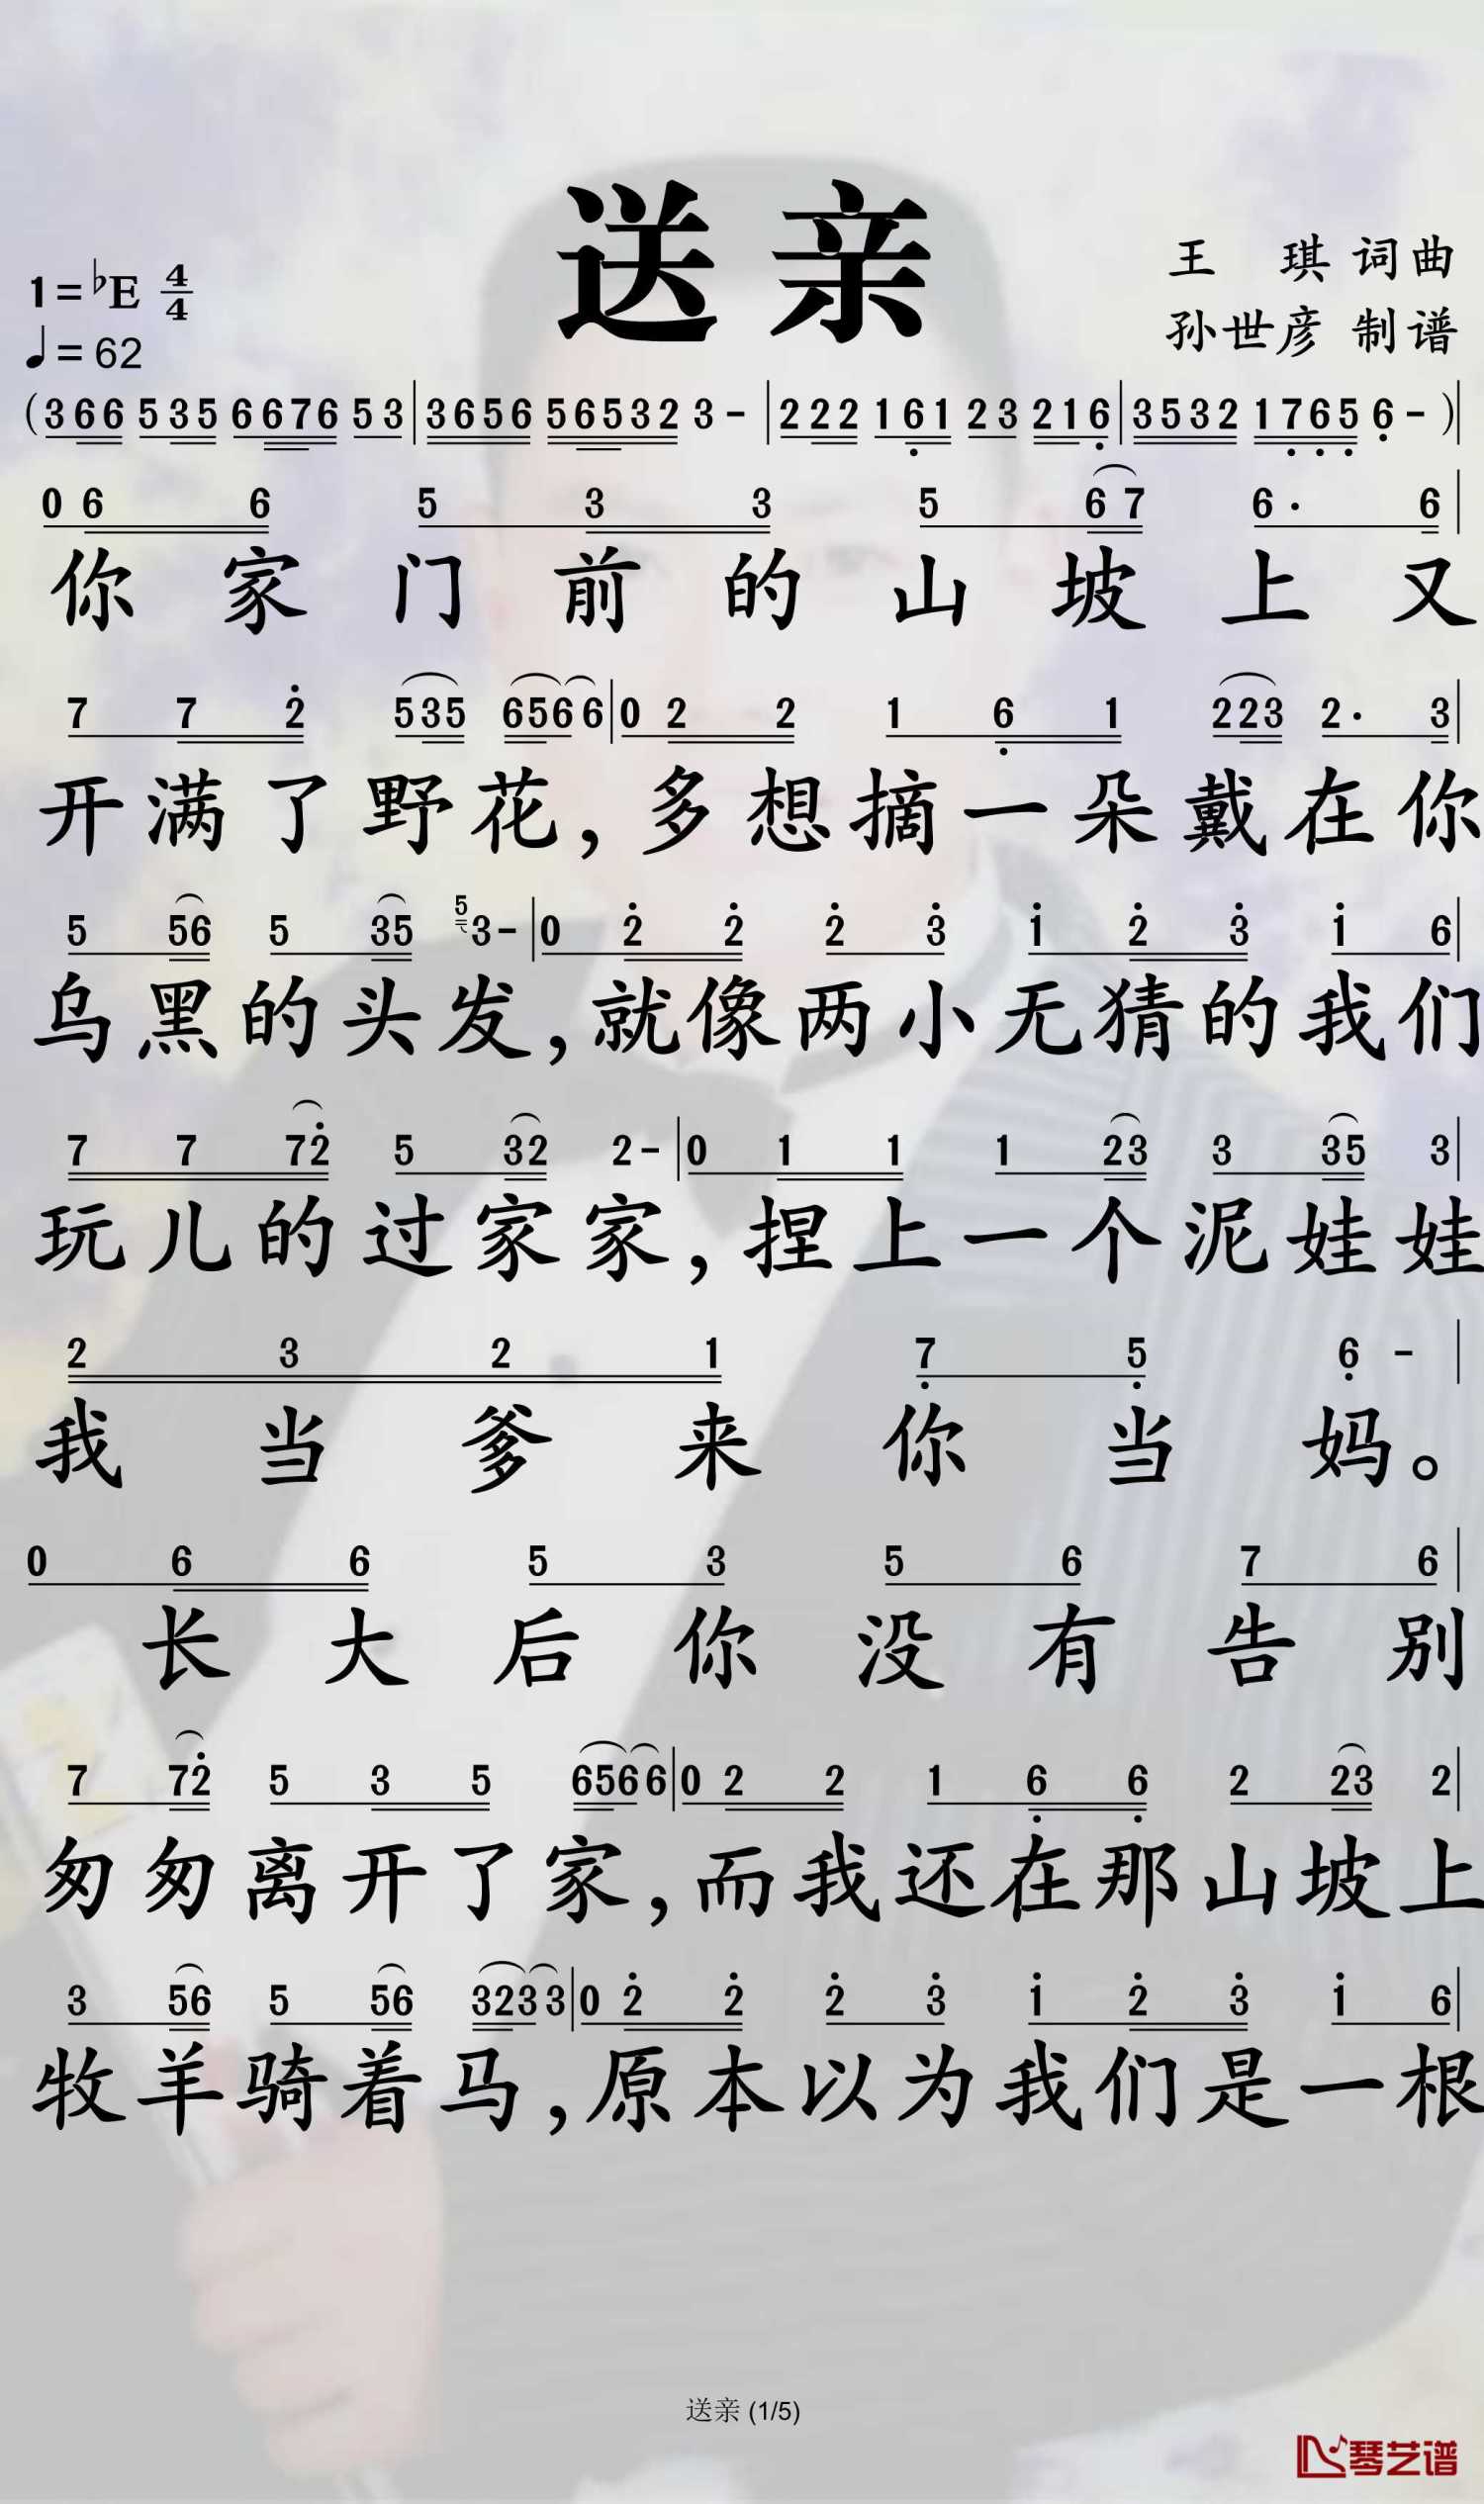 送亲
1=♭E 4/4
♩=62
王 琪 词曲
孙世彦 制谱
(366 535 6676 53|3656 56532 3-|222 161 23 216|3532 1765 6-)|
0 6 6 5 3 3 5 6 7 6· 6|
你家门前的山坡上又
7 7 2 535 6566|0 2 2 1 6 1 223 2· 3|
开满了野花,多想摘一朵戴在你
5 56 5 35 5 3-|0 2 2 2 3 1 2 3 1 6|
乌黑的头发,就像两小无猜的我们
7 7 72 5 32 2-|0 1 1 1 23 3 35 3|
玩儿的过家家,捏上一个泥娃娃
2 3 2 1 7 5 6 -|
我当爹来你当妈。
0 6 6 5 3 5 6 7 6|
长大后你没有告别
7 72 5 3 5 6566|0 2 2 1 6 6 2 23 2|
匆匆离开了家,而我还在那山坡上
3 56 5 56 3233|0 2 2 2 3 1 2 3 1 6|
牧羊骑着马,原本以为我们是一根
送亲 (1/5)
琴艺谱